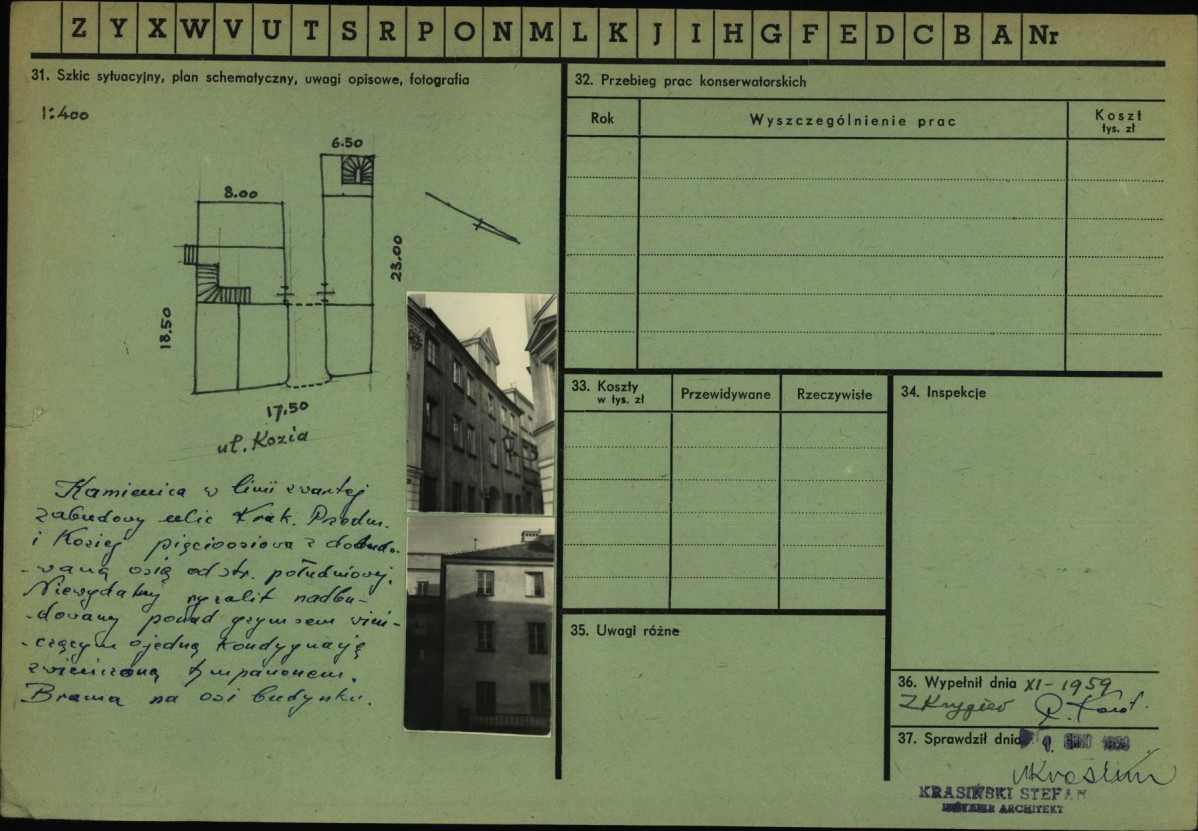 Z Y X W V U T S R P O N M L K J I H G F E D C B A Nr
31. Szkic sytuacyjny, plan schematyczny, uwagi opisowe, fotografia
1:400
6.50
8.00
23.00
18.50
17,50
ul. Kozia
Kamienica w linii zwartej
zabudowy ulic Krak. Przedm.
i Koziej pięcioosiowa z dobudo-
-waną osią od str. południowej.
Niewydatny ryzalit nadbu-
-dowany ponad gzymsem wień-
-czącym o jedną kondygnację
zwieńczoną tympanonem.
Brama na osi budynku.
32. Przebieg prac konserwatorskich
Rok
Wyszczególnienie prac
Koszt
tys. zł
33. Koszty
w tys. zł
Przewidywane
Rzeczywiste
34. Inspekcje
35. Uwagi różne
36. Wypełnił dnia XI-1959
37. Sprawdził dnia
KRASIŃSKI STEFAN
INŻYNIER ARCHITEKT